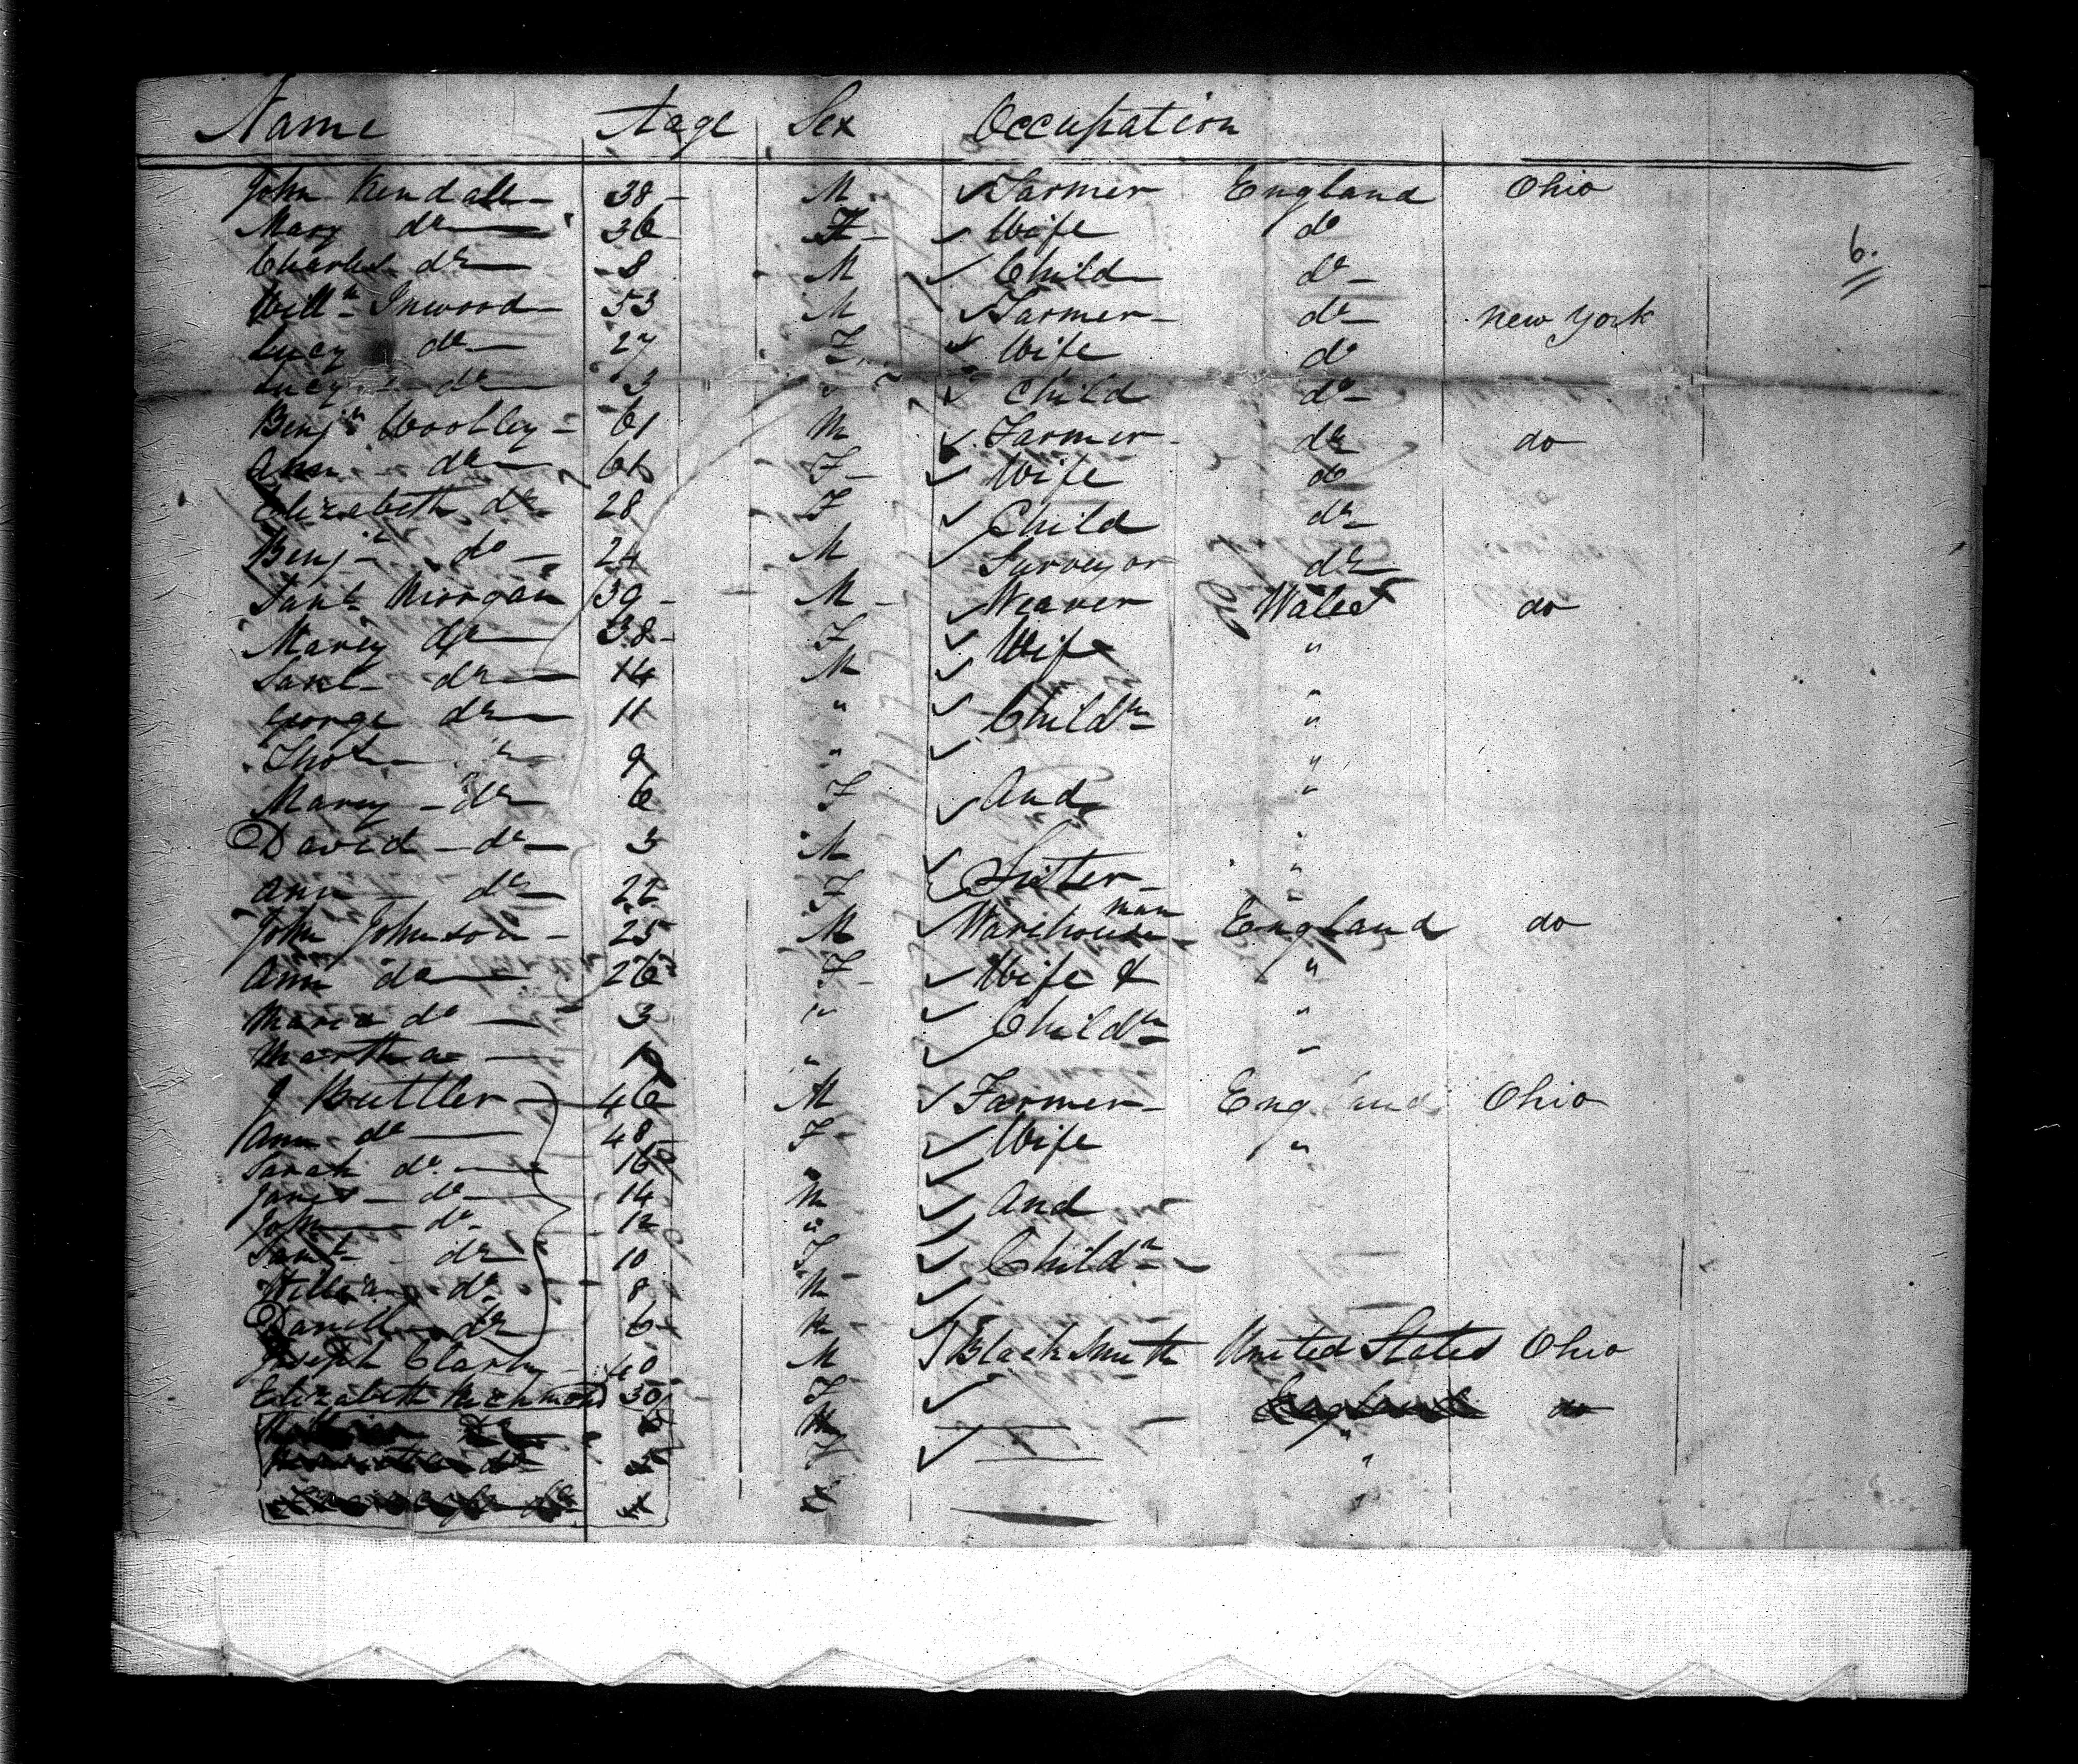 Name Aage Sex Occupation
John Kendall 38 M Farmer England Ohio
Mary do 36 F Wife do
Charles do 8 M Child do
6.
Willm Inwood 53 M Farmer do New York
Lucy do 27 F Wife do
Lucy do 3 " Child do
Benjn 61 M Farmer do do
Ann do 61 F Wife do
Elizebeth do 28 F Child do
Benjn do 24 M Surveyor do
Saml Morgan 39 M Weaver Wales do
Marey do 38 F Wife "
Saml do 14 M "
George do 11 " Childn "
Thos do 9 " "
Marey do 6 F And "
David do 3 M "
Ann do 22 F Sister "
John Johnson 25 M Warihouse man England do
Ann do 26 F Wife & "
Maria do 3 " Childn "
Martha 1 " "
J Buttler 46 M Farmer England Ohio
Ann do 48 F Wife "
Sarah do 16 "
James do 14 M And
John do 12 "
do 10 F Childn
William do 8 M
Daniell do 6 M
Joseph 40 M BlackSmith United States Ohio
Elizabeth Richmond 30 F England do
do M "
do F "
do "